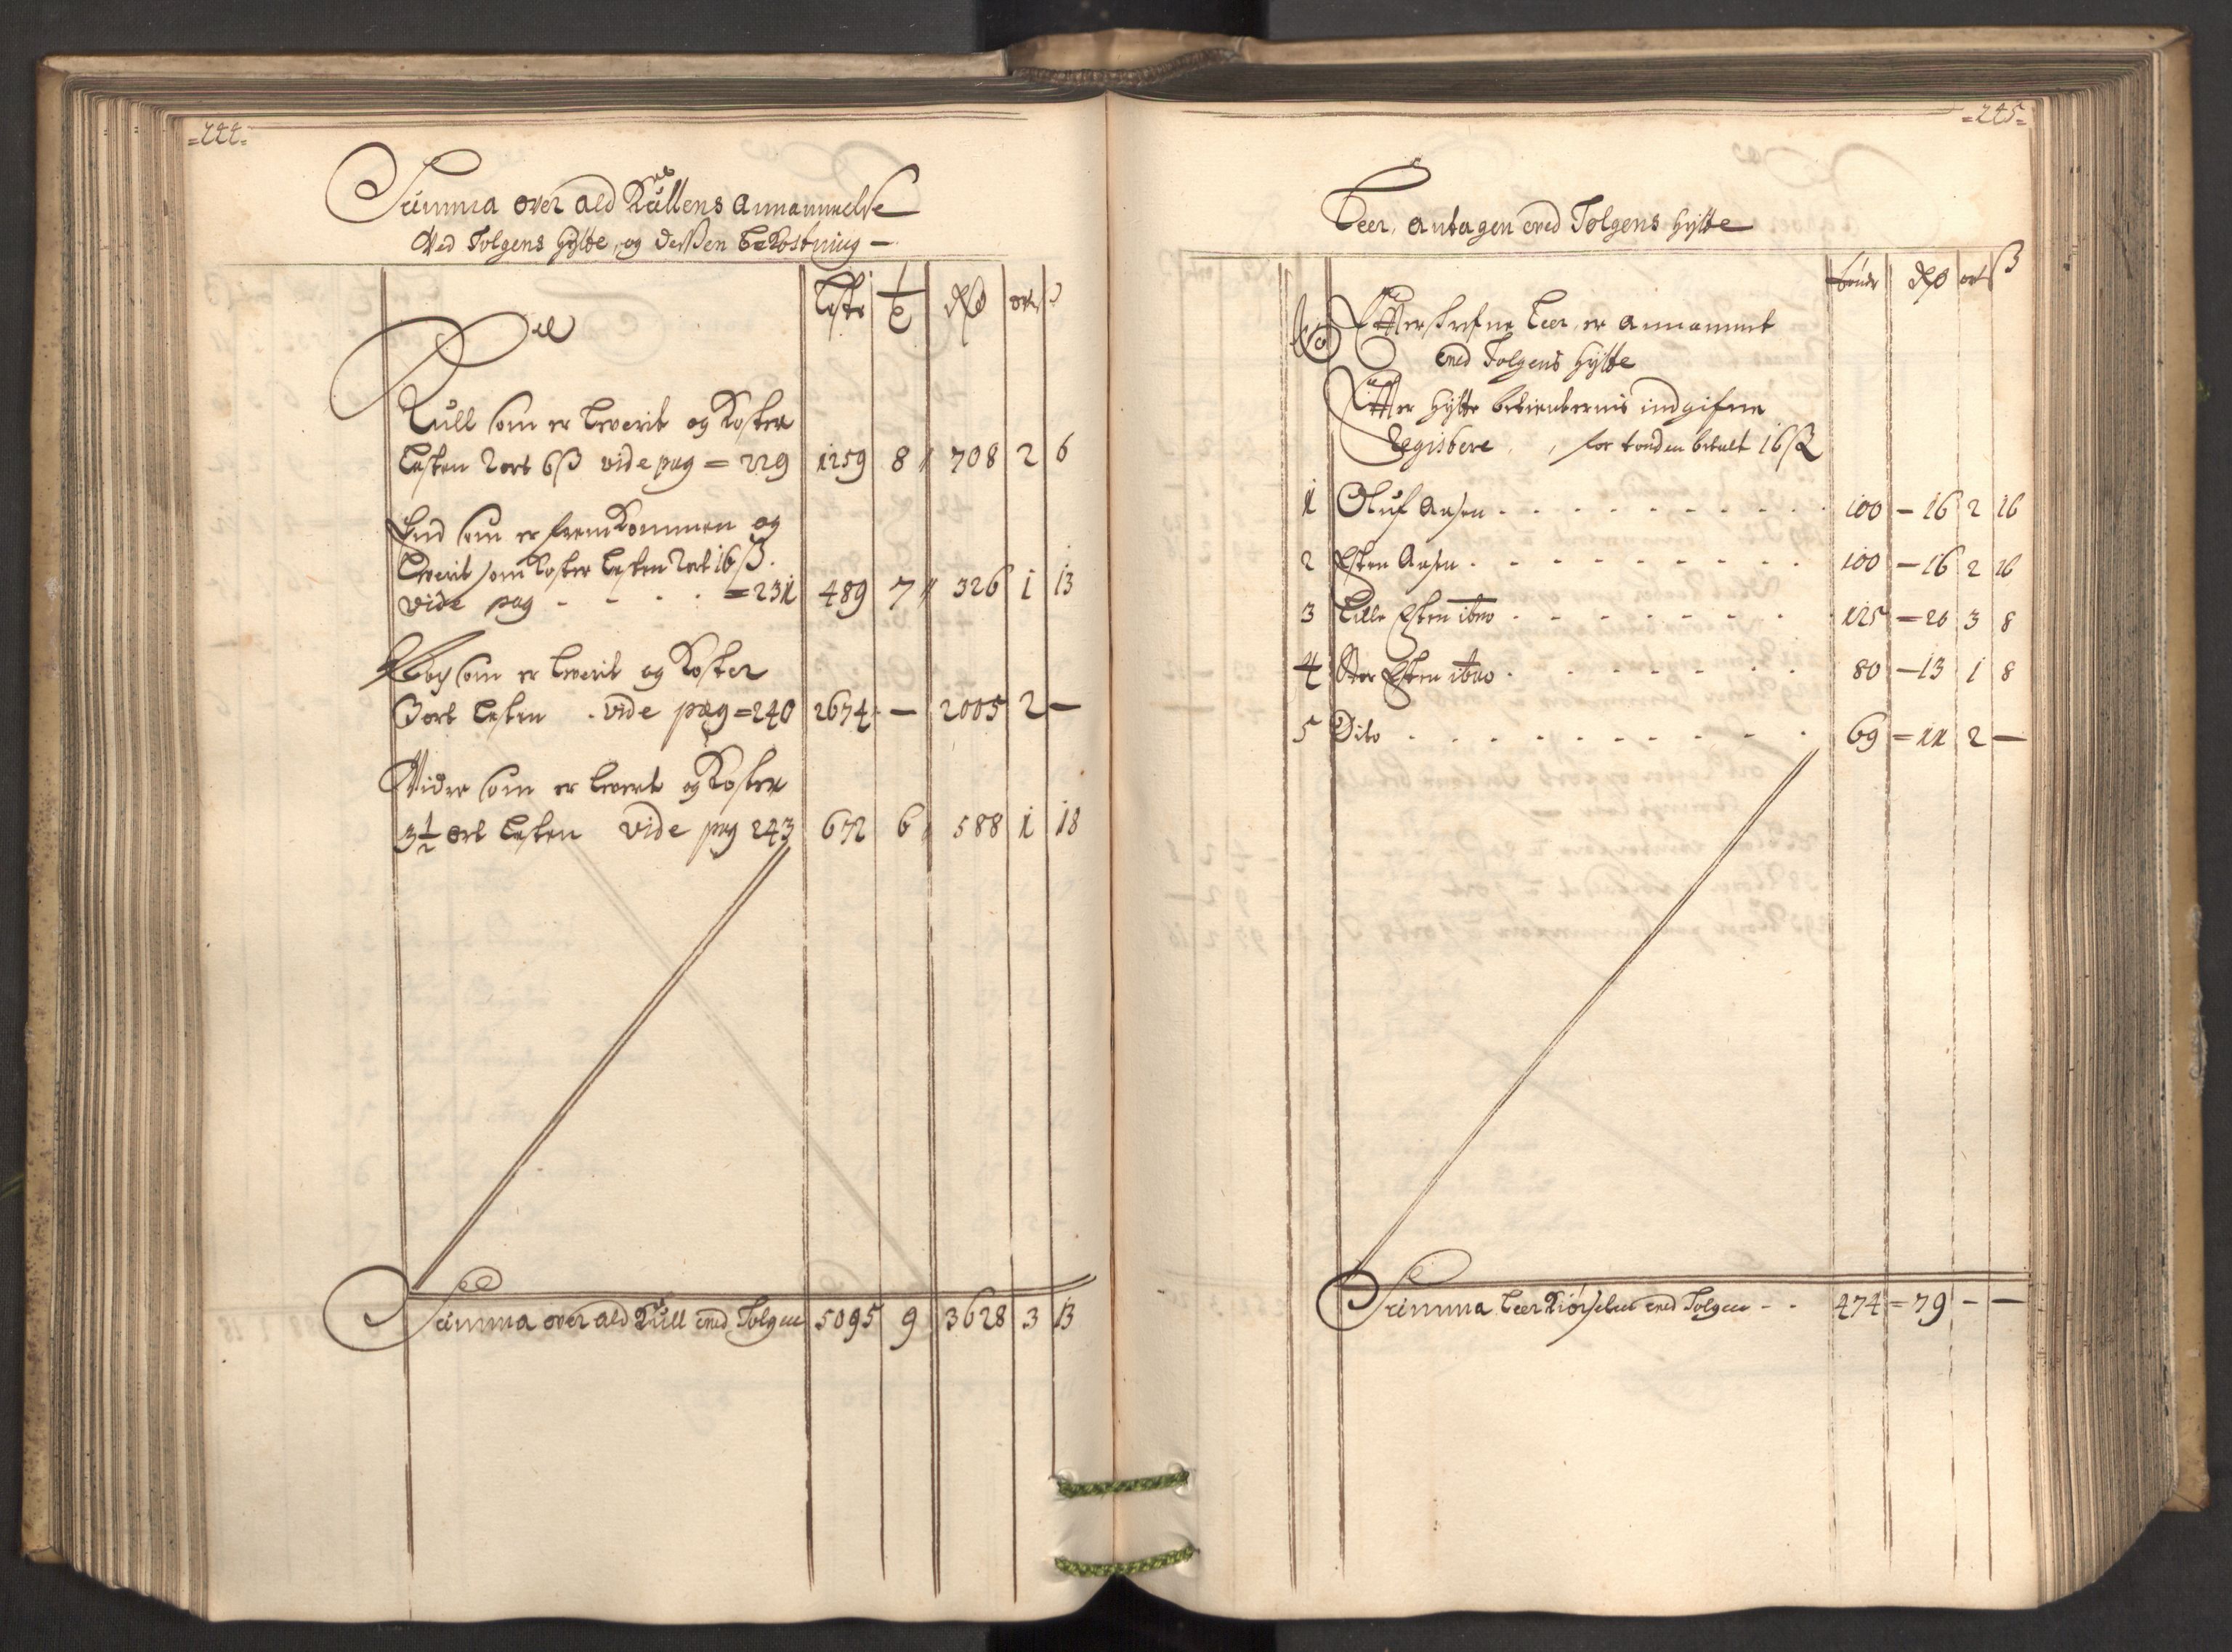 =244=
Summa over ald Kullens Annammelse
Ved Tolgens hytte, og dessen bekostning —
Lester | 1/2 | Rdr | ort | ß
Kull som er leverit og Koster
Lesten 2 ort 6 ß vide pag = 229 | 1259 | 8 | 708 | 2 | 6
End som er fremkommen og
leverit som koster lesten 2 ort 16 ß.
vide pag - - - = 231 | 489 | 7 | 326 | 1 | 13
som er leverit og Koster
3 ort lesten . vide pag = 240 | 2674 | — | 2005 | 2 | —
Vider som er leverit og Koster
3 1/2 ort lesten vide pag 243 | 672 | 6 | 588 | 1 | 18
Summa over ald Kull ved Tolgen | 5095 | 9 | 3628 | 3 | 13
=245=
Leer, antagen ved Tolgens hytte
tønder | Rdr | ort | ß
No Efterskrefne Leer, er annammit
ved Tolgens hytte
Efter hytte betienternis indgifne
Registere, for tonden betalt 16 ß
1 Oluf Aasen - - - 100 — 16 | 2 | 16
2 Esten Aasen - - - 100 — 16 | 2 | 16
3 Lille Esten ibm - - - 125 = 20 | 3 | 8
4 Stor Esten ibm - - - 80 — 13 | 1 | 8
5 Dito - - - 69 = 11 | 2 | —
Summa Leer Kiørselen ved Tolgen - - 474 = 79 | - | —